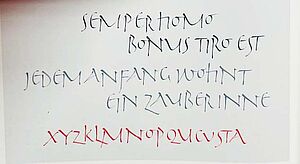 SEMPER HOMO
BONUS TIRO EST
JEDEM ANFANG WOHNT
EIN ZAUBER INNE
XYZKLMNOPQUEVSTA